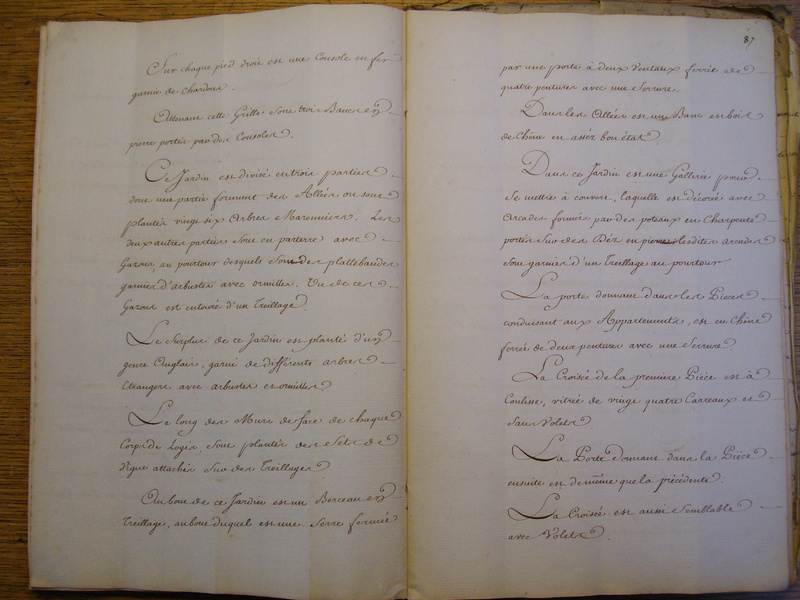 Sur chaque pied droit est une Console en fer
garnie de chardons.
Attenant cette Grille sont trois Bancs en
pierre portés par des Consoles.
Ce Jardin est divisé en trois parties
dont une partie forment des Allées où sont
plantés vingt six Arbres Maronniers. Les
deux autres parties sont en parterre avec
Gazon, au pourtour desquels sont des plattebandes
garnies d'arbustes avec ormilles. Un de ces
Gazons est entouré d'un Treillage.
Le Surplus de ce Jardin est planté d'un
genre Anglais, garni de différents arbres
Etrangers avec arbustes et ormilles
Le long des Murs de face de chaque
Corps de Logis, sont plantés des Seps de
Vigne attachés sur des Treillages
Au bout de ce Jardin est un Berceau en
Treillage, au bout duquel est une Serre fermée
87
par une porte à deux Ventaux ferrée de
quatre pentures avec une Serrure.
Dans les Allées est un Banc en bois
de Chêne en assés bon état
Dans ce Jardin est une Gallerie pour
se mettre à couvert, laquelle est décorée avec
Arcades formées par des poteaux en Charpente
portés sur des Déz en pierre lesdites arcades
sont garnies d'un Treillage au pourtour
La porte donnant dans les Pieces
conduisant aux Appartements, est en Chêne
ferrée de deux pentures avec une Serrure
La Croisée de la première Piéce est à
Coulisse, vitrée de vingt quatre Carreaux et
sans Volets
La Porte donnant dans la Piéce
ensuite est de même que la précédente.
La Croisée est aussi Semblable
avec Volets.